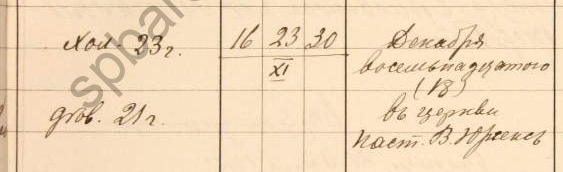 Хол. 23 г.
дѣв. 21 г.
16 23 30
XI
Декабря
восемьнадцатого
(18)
въ церкви
паст. В. Юргенсъ
spbar